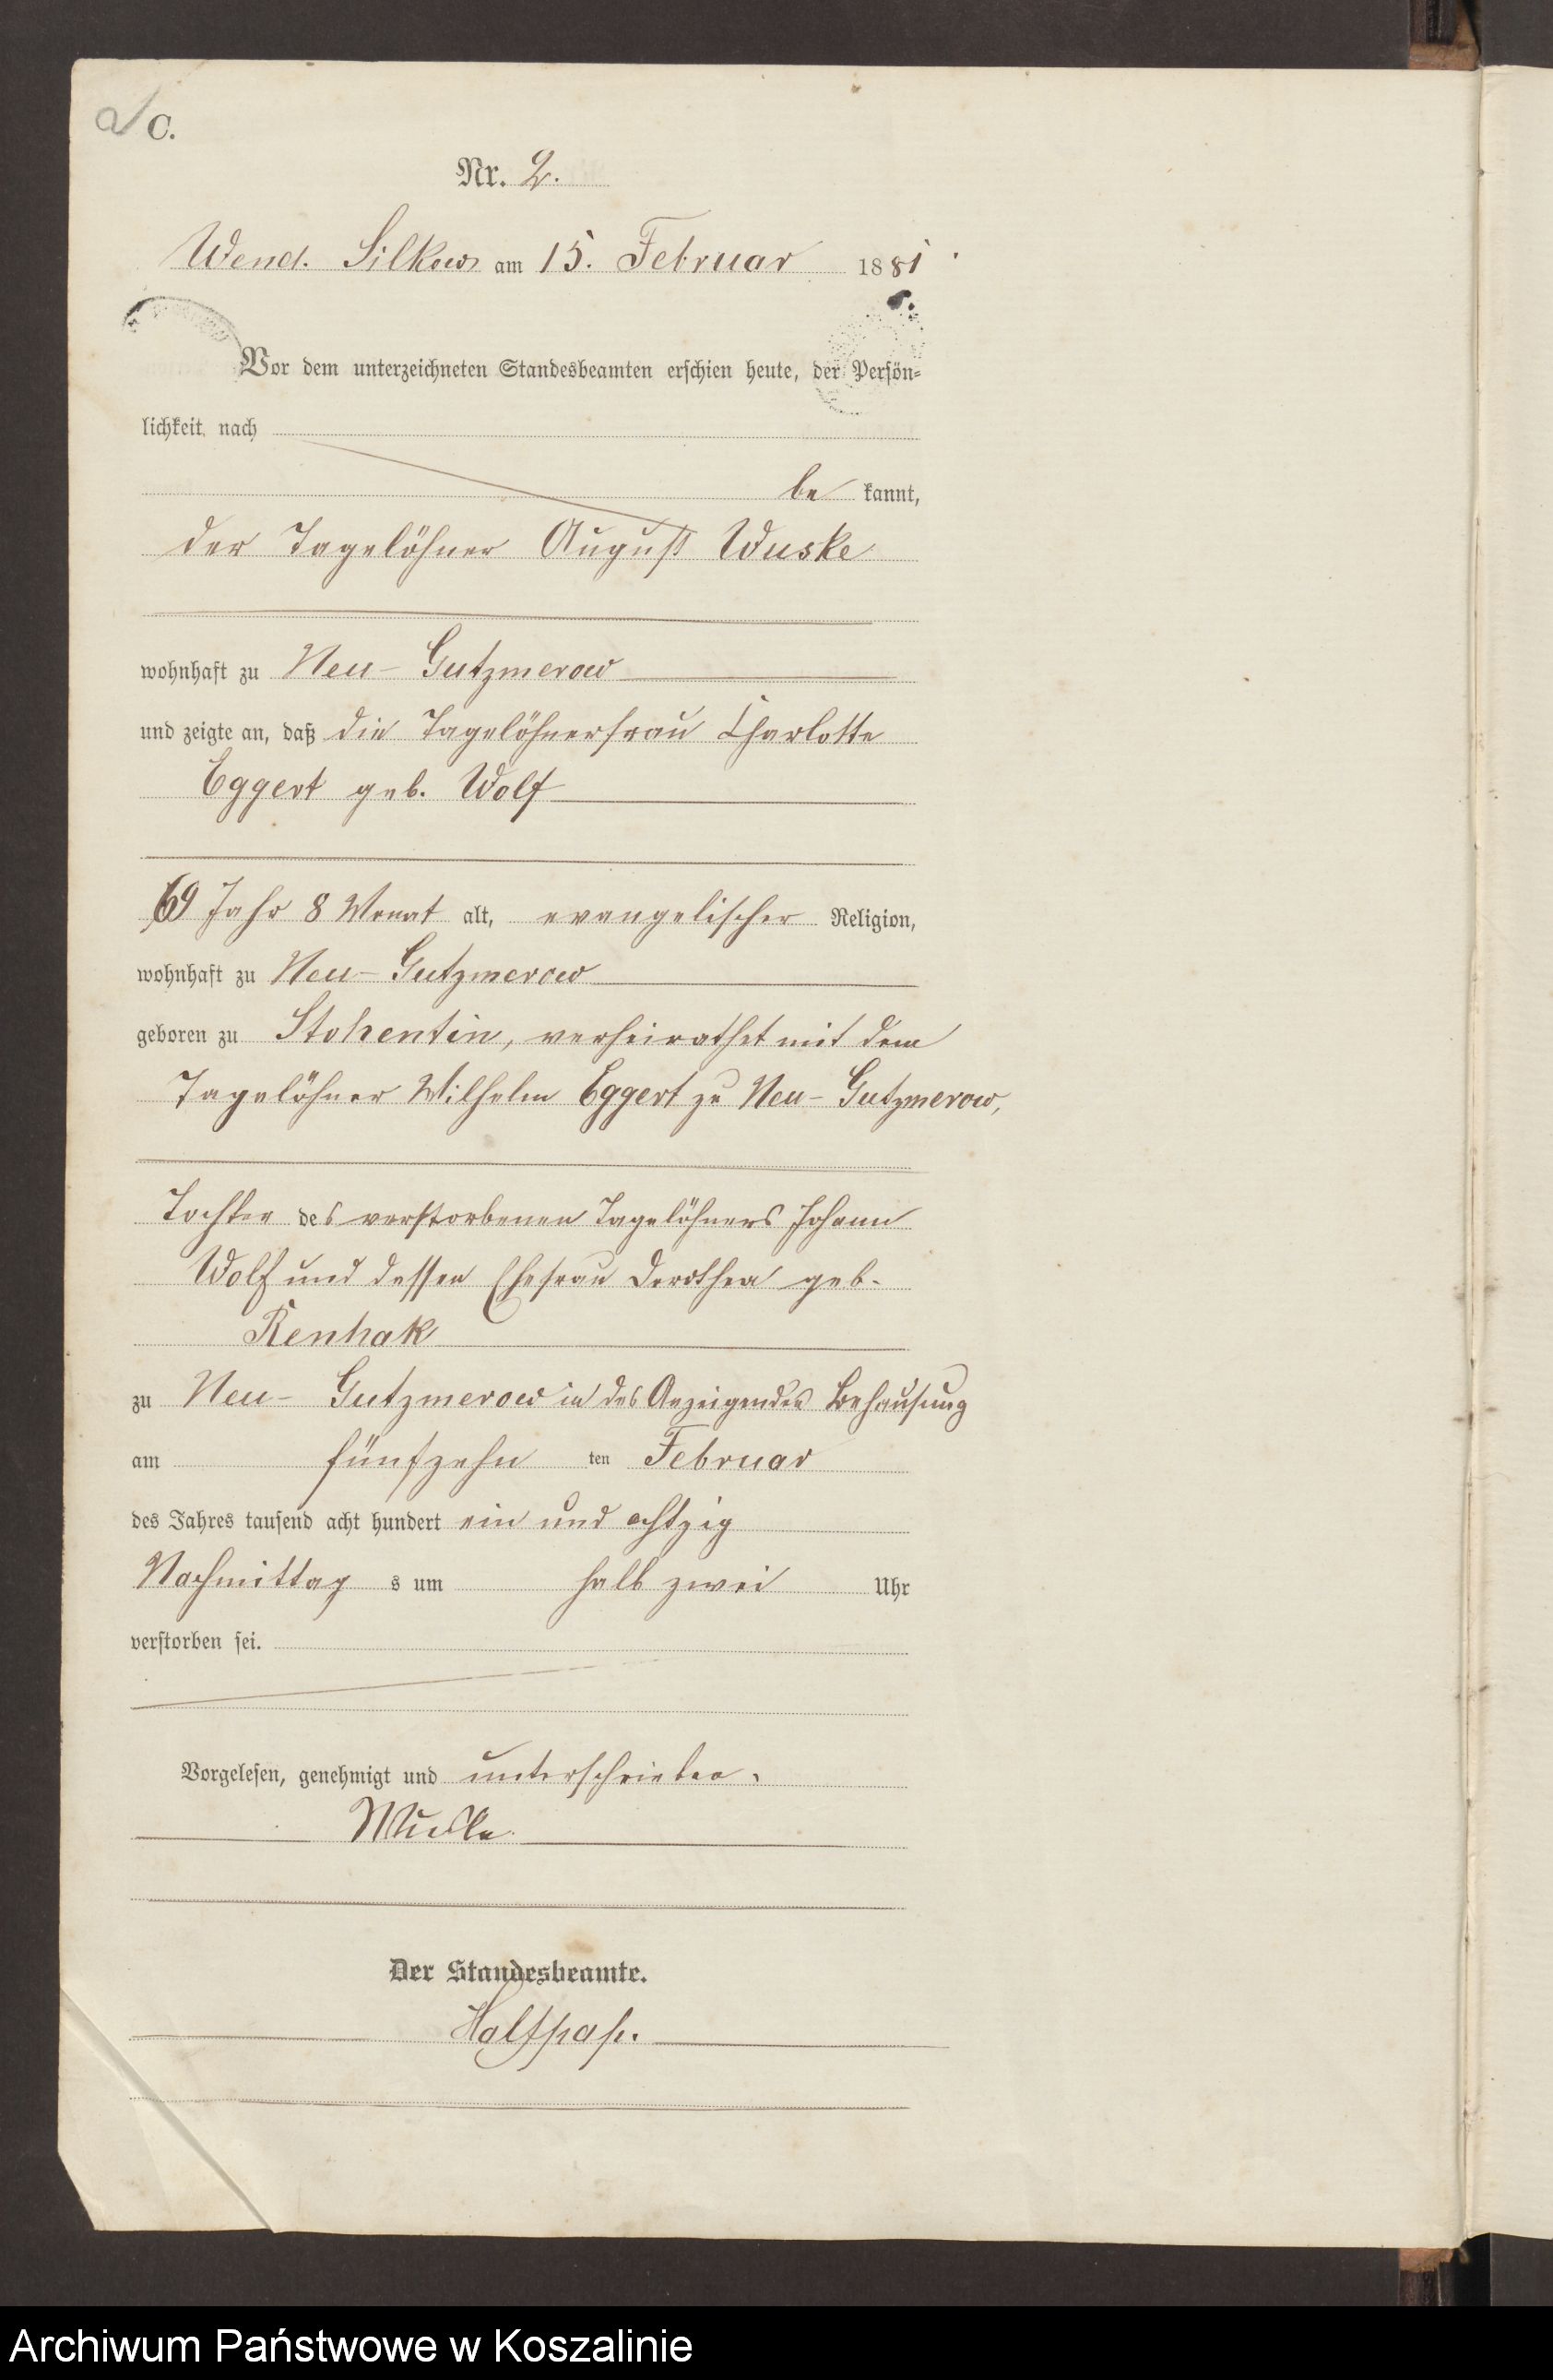 C.
Nr. 2.
Wend. Silkow am 15. Februar 1881.
Vor dem unterzeichneten Standesbeamten erschien heute, der Persön-
lichkeit nach
be kannt,
der Tagelöhner August Wuske
wohnhaft zu Neu-Gutzmerow
und zeigte an, daß die Tagelöhnerfrau Charlotte
Eggert geb. Wolf
69 Jahr 8 Monat alt, evangelischer Religion,
wohnhaft zu Neu-Gutzmerow
geboren zu Stohentin, verheirathet mit dem
Tagelöhner Wilhelm Eggert zu Neu-Gutzmerow,
Tochter des verstorbenen Tagelöhners Johann
Wolf und dessen Ehefrau Dorothea geb.
Renhak
zu Neu-Gutzmerow in des Anzeigenden Behausung
am fünfzehn ten Februar
des Jahres tausend acht hundert ein und achtzig
Nachmittag s um halb zwei Uhr
verstorben sei.
Vorgelesen, genehmigt und unterschrieben.
Wuske.
Der Standesbeamte.
Archiwum Państwowe w Koszalinie